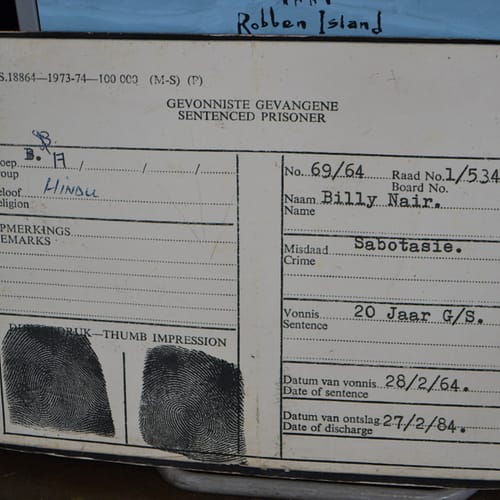 Robben Island
S.18864—1973-74—100 000 (M-S) (P)
GEVONNISTE GEVANGENE
SENTENCED PRISONER
oep B. A / / /
oup
eloof Hindu
eligion
PMERKINGS
EMARKS
DRUK—THUMB IMPRESSION
No. 69/64 Raad No. 1/534
Board No.
Naam Billy Nair.
Name
Misdaad Sabotasie.
Crime
Vonnis 20 Jaar G/S.
Sentence
Datum van vonnis 28/2/64.
Date of sentence
Datum van ontslag 27/2/84.
Date of discharge